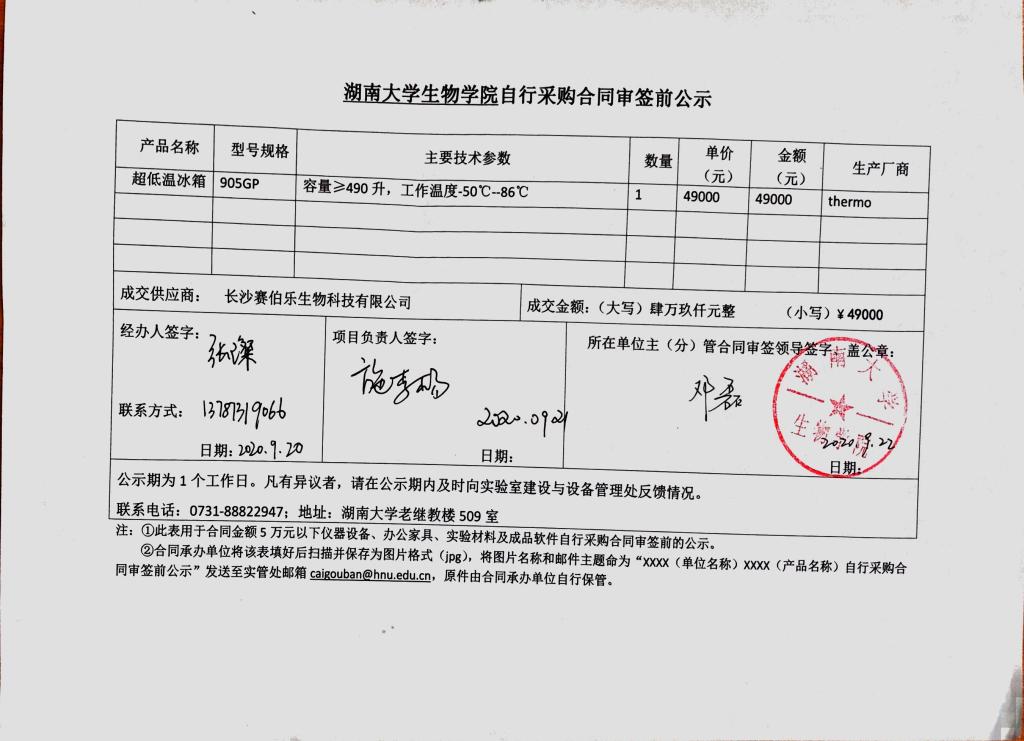 湖南大学生物学院自行采购合同审签前公示
产品名称 型号规格 主要技术参数 数量 单价（元） 金额（元） 生产厂商
超低温冰箱 905GP 容量≥490 升，工作温度-50℃--86℃ 1 49000 49000 thermo
成交供应商： 长沙赛伯乐生物科技有限公司 成交金额：（大写）肆万玖仟元整 （小写）¥ 49000
经办人签字： 项目负责人签字： 所在单位主（分）管合同审签领导签字、盖公章：
张璨 邓磊
湖南大学
生物学院
联系方式： 13787319066 2020.0921 2020.9.22
日期：2020.9.20 日期： 日期：
公示期为 1 个工作日。凡有异议者，请在公示期内及时向实验室建设与设备管理处反馈情况。
联系电话：0731-88822947；地址：湖南大学老继教楼 509 室
注：①此表用于合同金额 5 万元以下仪器设备、办公家具、实验材料及成品软件自行采购合同审签前的公示。
②合同承办单位将该表填好后扫描并保存为图片格式（jpg），将图片名称和邮件主题命为“XXXX（单位名称）XXXX（产品名称）自行采购合
同审签前公示”发送至实管处邮箱 caigouban@hnu.edu.cn，原件由合同承办单位自行保管。